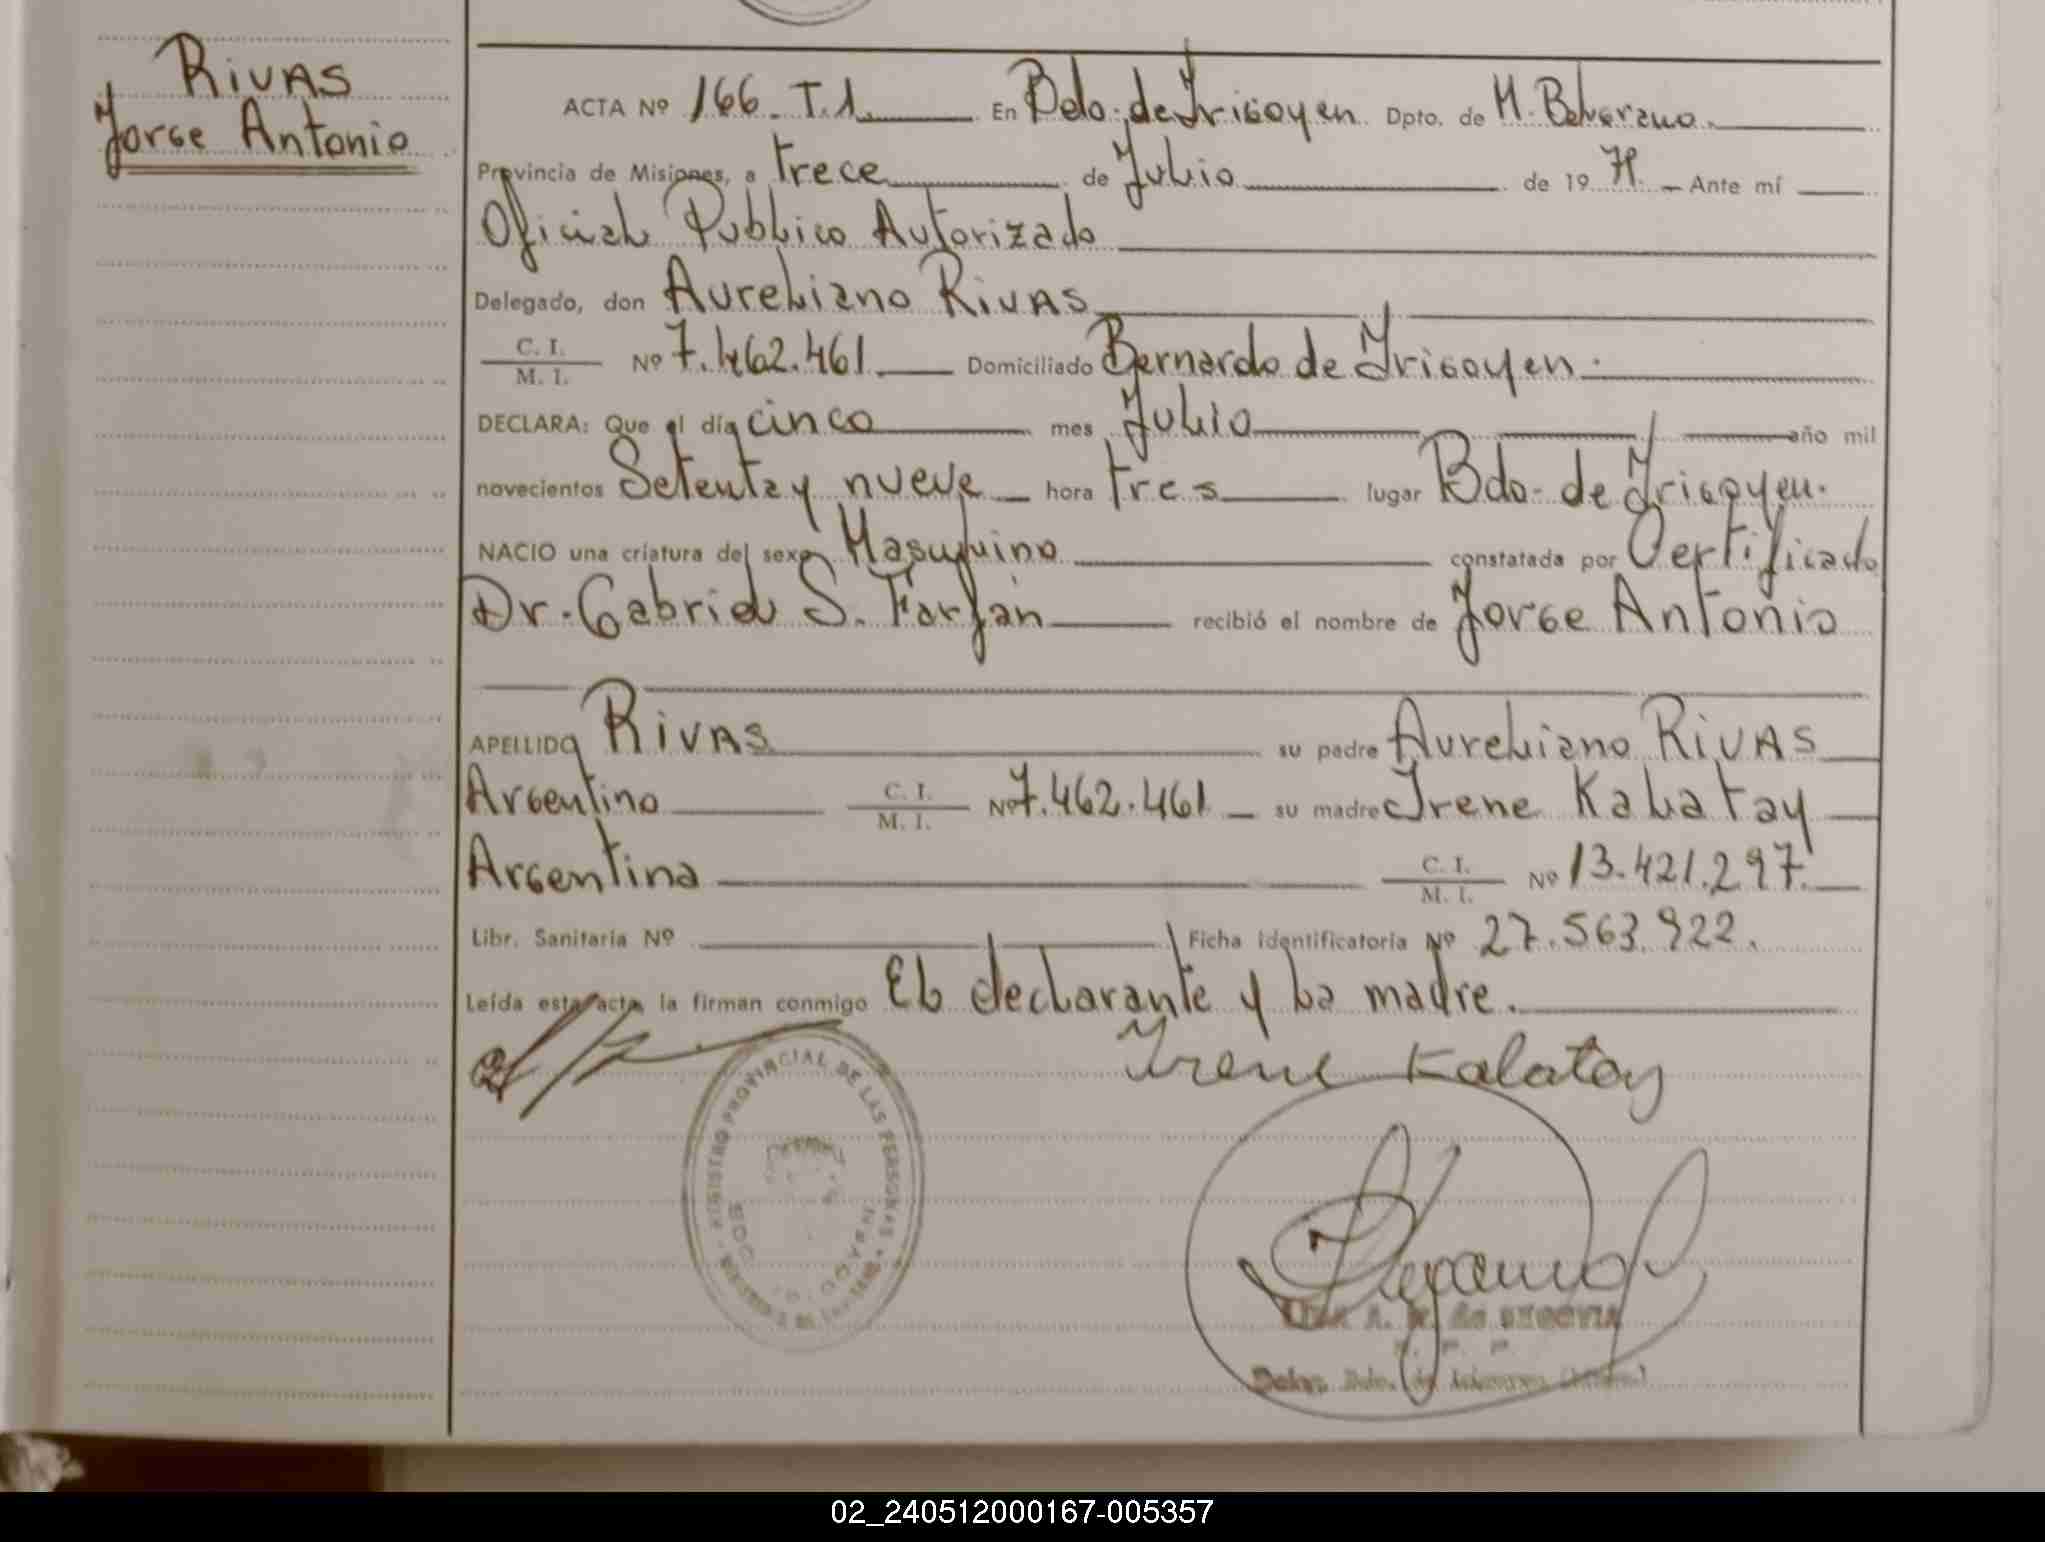 RIVAS
Jorge Antonio
ACTA Nº 166. T.1. En Bdo. de Irigoyen Dpto. de M. Belgrano.
Provincia de Misiones, a trece de Julio de 19 79. Ante mí
Oficial Publico Autorizado
Delegado, don Aureliano RIVAS
C. I.
M. I. Nº 7.462.461 Domiciliado Bernardo de Irigoyen.
DECLARA: Que el día cinco mes Julio año mil
novecientos Setenta y nueve hora tres lugar Bdo. de Irigoyen.
NACIO una criatura del sexo Masculino constatada por Certificado
Dr. Gabriel S. Farfán recibió el nombre de Jorge Antonio
APELLIDO RIVAS su padre Aureliano RIVAS
Argentino C. I. M. I. Nº 7.462.461 su madre Irene Kalatay
Argentina C. I. M. I. Nº 13.421.297.
Libr. Sanitaria Nº Ficha identificatoria Nº 27.563.922.
Leída esta acta, la firman conmigo El declarante y La madre.
Irene Kalatay
REGISTRO PROVINCIAL DE LAS PERSONAS
02_240512000167-005357